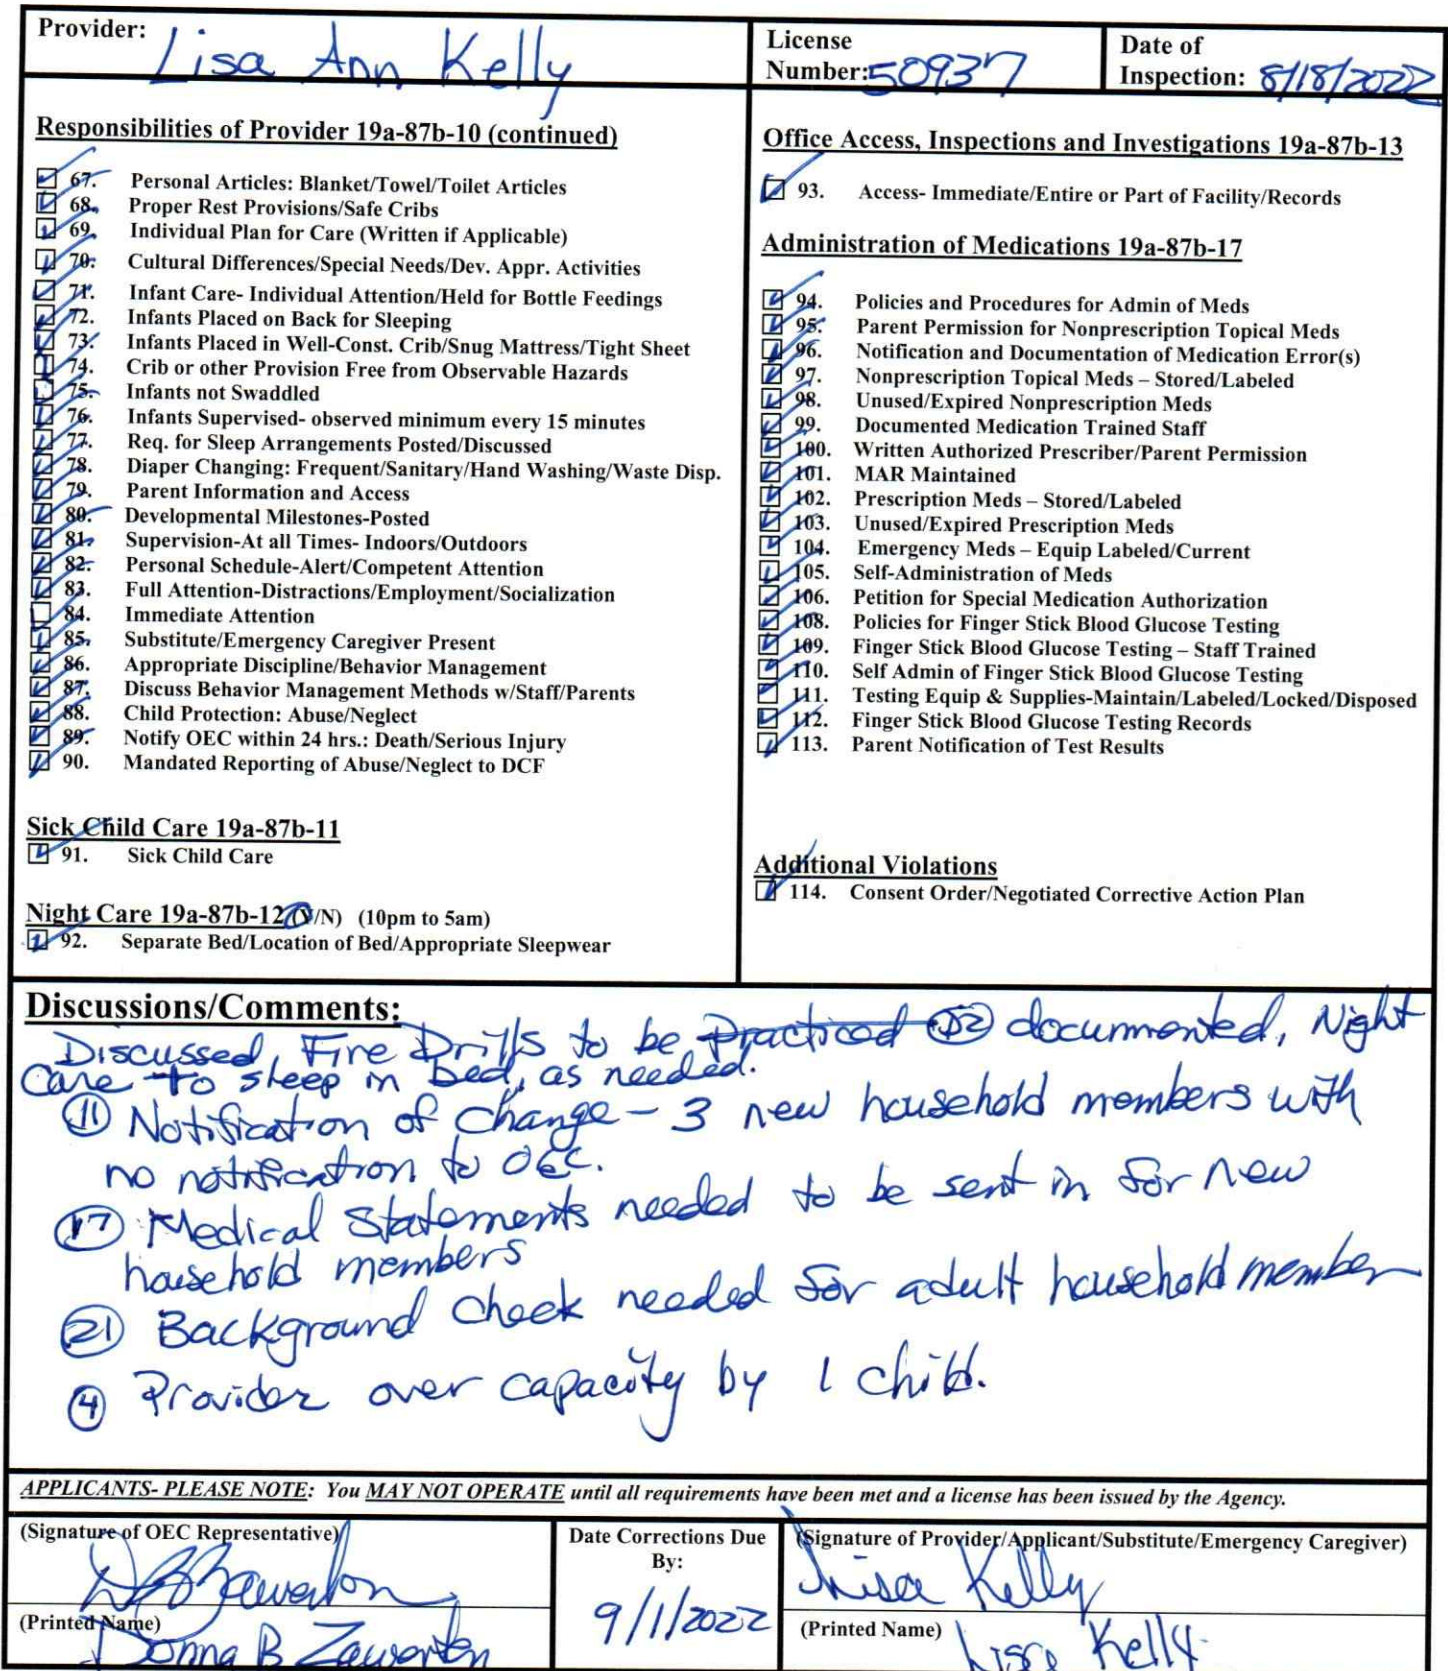 Provider: Lisa Ann Kelly
License
Number: 50937
Date of
Inspection: 8/18/2022
Responsibilities of Provider 19a-87b-10 (continued)
67. Personal Articles: Blanket/Towel/Toilet Articles
68. Proper Rest Provisions/Safe Cribs
69. Individual Plan for Care (Written if Applicable)
70. Cultural Differences/Special Needs/Dev. Appr. Activities
71. Infant Care- Individual Attention/Held for Bottle Feedings
72. Infants Placed on Back for Sleeping
73. Infants Placed in Well-Const. Crib/Snug Mattress/Tight Sheet
74. Crib or other Provision Free from Observable Hazards
75. Infants not Swaddled
76. Infants Supervised- observed minimum every 15 minutes
77. Req. for Sleep Arrangements Posted/Discussed
78. Diaper Changing: Frequent/Sanitary/Hand Washing/Waste Disp.
79. Parent Information and Access
80. Developmental Milestones-Posted
81. Supervision-At all Times- Indoors/Outdoors
82. Personal Schedule-Alert/Competent Attention
83. Full Attention-Distractions/Employment/Socialization
84. Immediate Attention
85. Substitute/Emergency Caregiver Present
86. Appropriate Discipline/Behavior Management
87. Discuss Behavior Management Methods w/Staff/Parents
88. Child Protection: Abuse/Neglect
89. Notify OEC within 24 hrs.: Death/Serious Injury
90. Mandated Reporting of Abuse/Neglect to DCF
Sick Child Care 19a-87b-11
91. Sick Child Care
Night Care 19a-87b-12 (Y/N) (10pm to 5am)
92. Separate Bed/Location of Bed/Appropriate Sleepwear
Office Access, Inspections and Investigations 19a-87b-13
93. Access- Immediate/Entire or Part of Facility/Records
Administration of Medications 19a-87b-17
94. Policies and Procedures for Admin of Meds
95. Parent Permission for Nonprescription Topical Meds
96. Notification and Documentation of Medication Error(s)
97. Nonprescription Topical Meds – Stored/Labeled
98. Unused/Expired Nonprescription Meds
99. Documented Medication Trained Staff
100. Written Authorized Prescriber/Parent Permission
101. MAR Maintained
102. Prescription Meds – Stored/Labeled
103. Unused/Expired Prescription Meds
104. Emergency Meds – Equip Labeled/Current
105. Self-Administration of Meds
106. Petition for Special Medication Authorization
108. Policies for Finger Stick Blood Glucose Testing
109. Finger Stick Blood Glucose Testing – Staff Trained
110. Self Admin of Finger Stick Blood Glucose Testing
111. Testing Equip & Supplies-Maintain/Labeled/Locked/Disposed
112. Finger Stick Blood Glucose Testing Records
113. Parent Notification of Test Results
Additional Violations
114. Consent Order/Negotiated Corrective Action Plan
Discussions/Comments:
Discussed, Fire Drills to be Practiced documented, Night
Care to sleep in bed, as needed.
11 Notification of Change – 3 new household members with
no notification to OEC.
17 Medical Statements needed to be sent in for new
household members
21 Background check needed for adult household member
4 Provider over capacity by 1 child.
APPLICANTS- PLEASE NOTE: You MAY NOT OPERATE until all requirements have been met and a license has been issued by the Agency.
(Signature of OEC Representative)
(Printed Name)
Donna B Zawerton
Date Corrections Due
By:
9/1/2022
(Signature of Provider/Applicant/Substitute/Emergency Caregiver)
Lisa Kelly
(Printed Name) Lisa Kelly